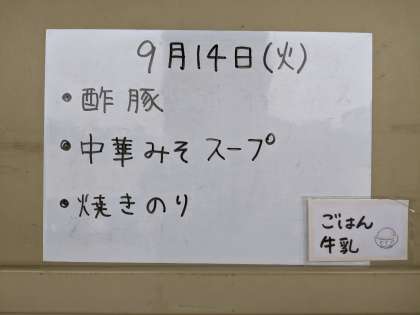 9月14日(火)
• 酢豚
• 中華みそスープ
• 焼きのり
ごはん
牛乳